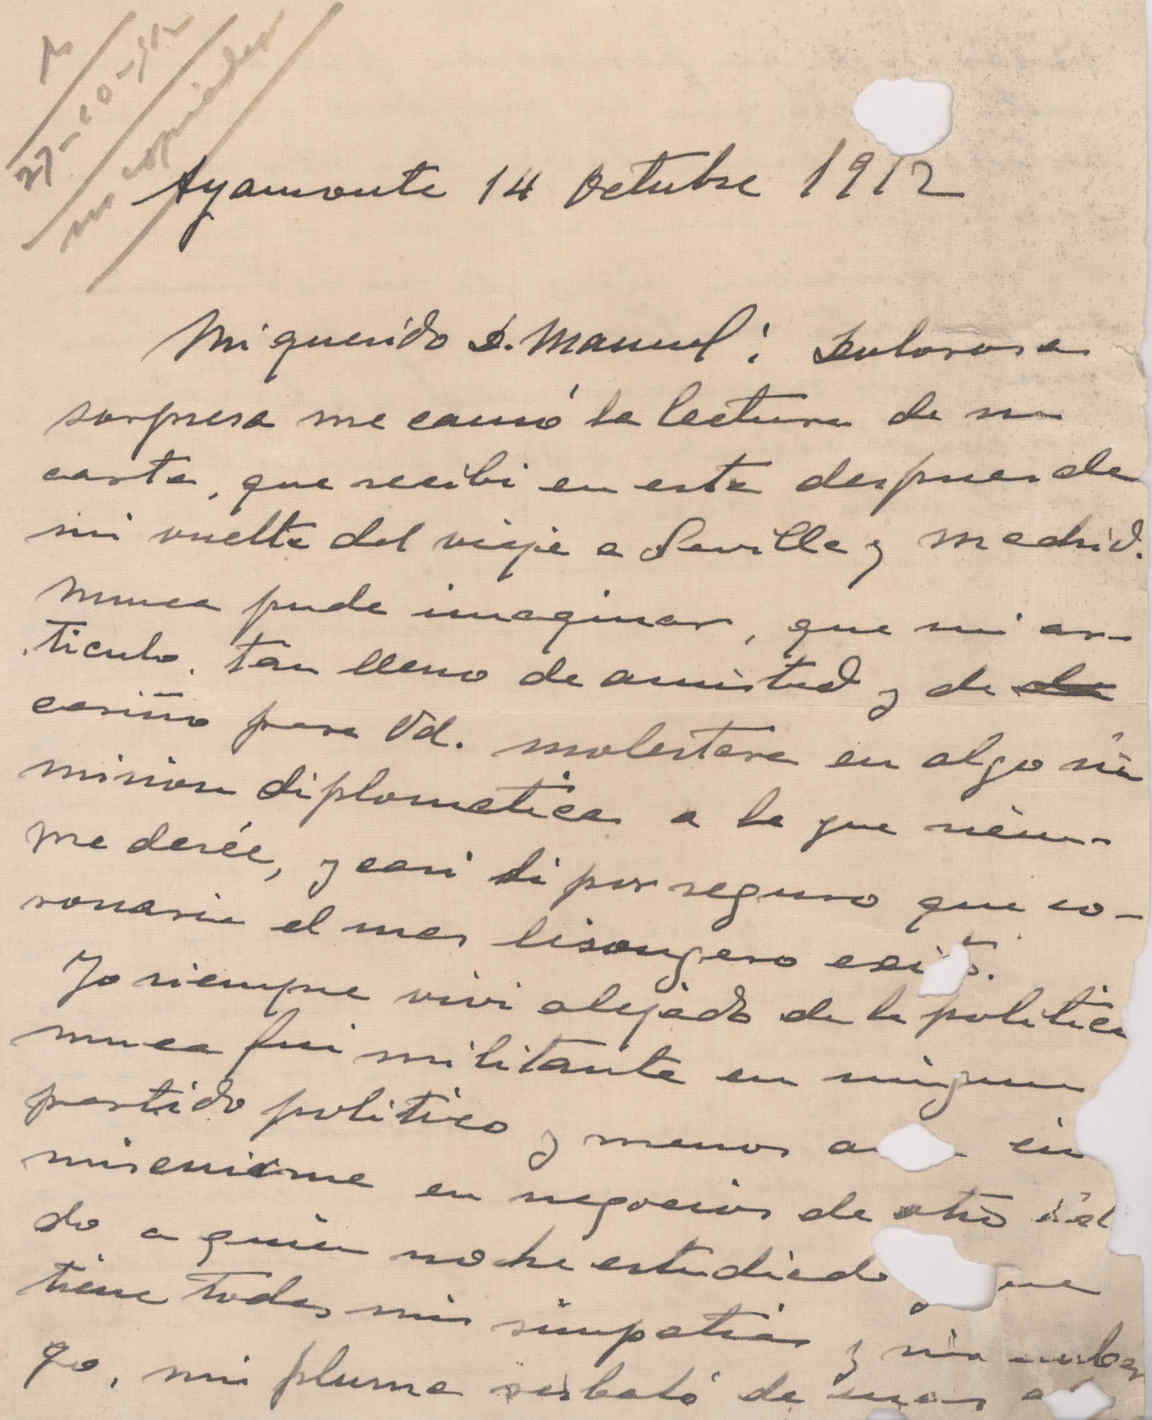 R
27-10-912
no copiador
Ayamonte 14 Octubre 1912
Mi querido D. Manuel: Dolorosa
sorpresa me causó la lectura de su
carta, que recibi en esta despues de
mi vuelta del viaje a Sevilla y Madrid.
Nunca pude imaginar, que mi ar-
ticulo. tan lleno de amistad y de de
cariño para Vd. molestara en algo su
mision diplomatica a la que siem-
me desée, y casi di por seguro que co-
ronaria el mas lisongero exito.
Yo siempre vivi alejado de la politica
nunca fui militante en ningun
partido politico y menos a in
miscuirme en negocios de otro
do a quien no he estudiado que
tiene todas mis simpatias y sin embar
go, mi pluma resbaló de unas